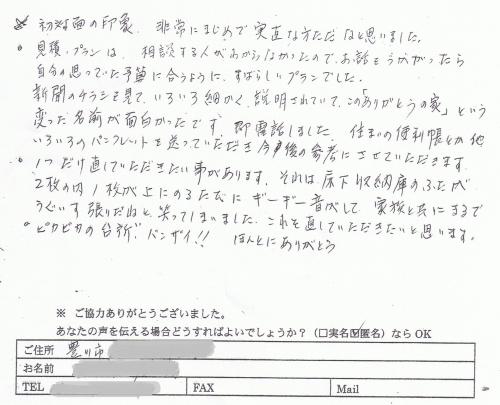 初対面の印象、非常にまじめで実直な方だなと思いました。
。見積、プランは、相談する人がわからなかったのでお話をうかがったら
自分の思っていた予算に合うように、すばらしいプランでした。
新聞のチラシを見て、いろいろ細かく、説明されていて、この「ありがとうの家」という
変った名前が面白かったです。即電話しました。住まいの便利帳とか他
いろいろのパンフレットを送っていただき今後の参考にさせていただきます。
。1つだけ直していただきたい事があります。それは床下収納庫のふたが
2枚の内1枚が上にのるたびにギーギー音がして家族と共にまるで
うぐいす張りだねと、笑ってしまいました。これを直していただきたいと思います。
。ピカピカの台所。バンザイ!! ほんとにありがとう
※ ご協力ありがとうございました。
あなたの声を伝える場合どうすればよいでしょうか?(□実名☑匿名)ならOK
ご住所 豊川市
お名前
TEL FAX Mail